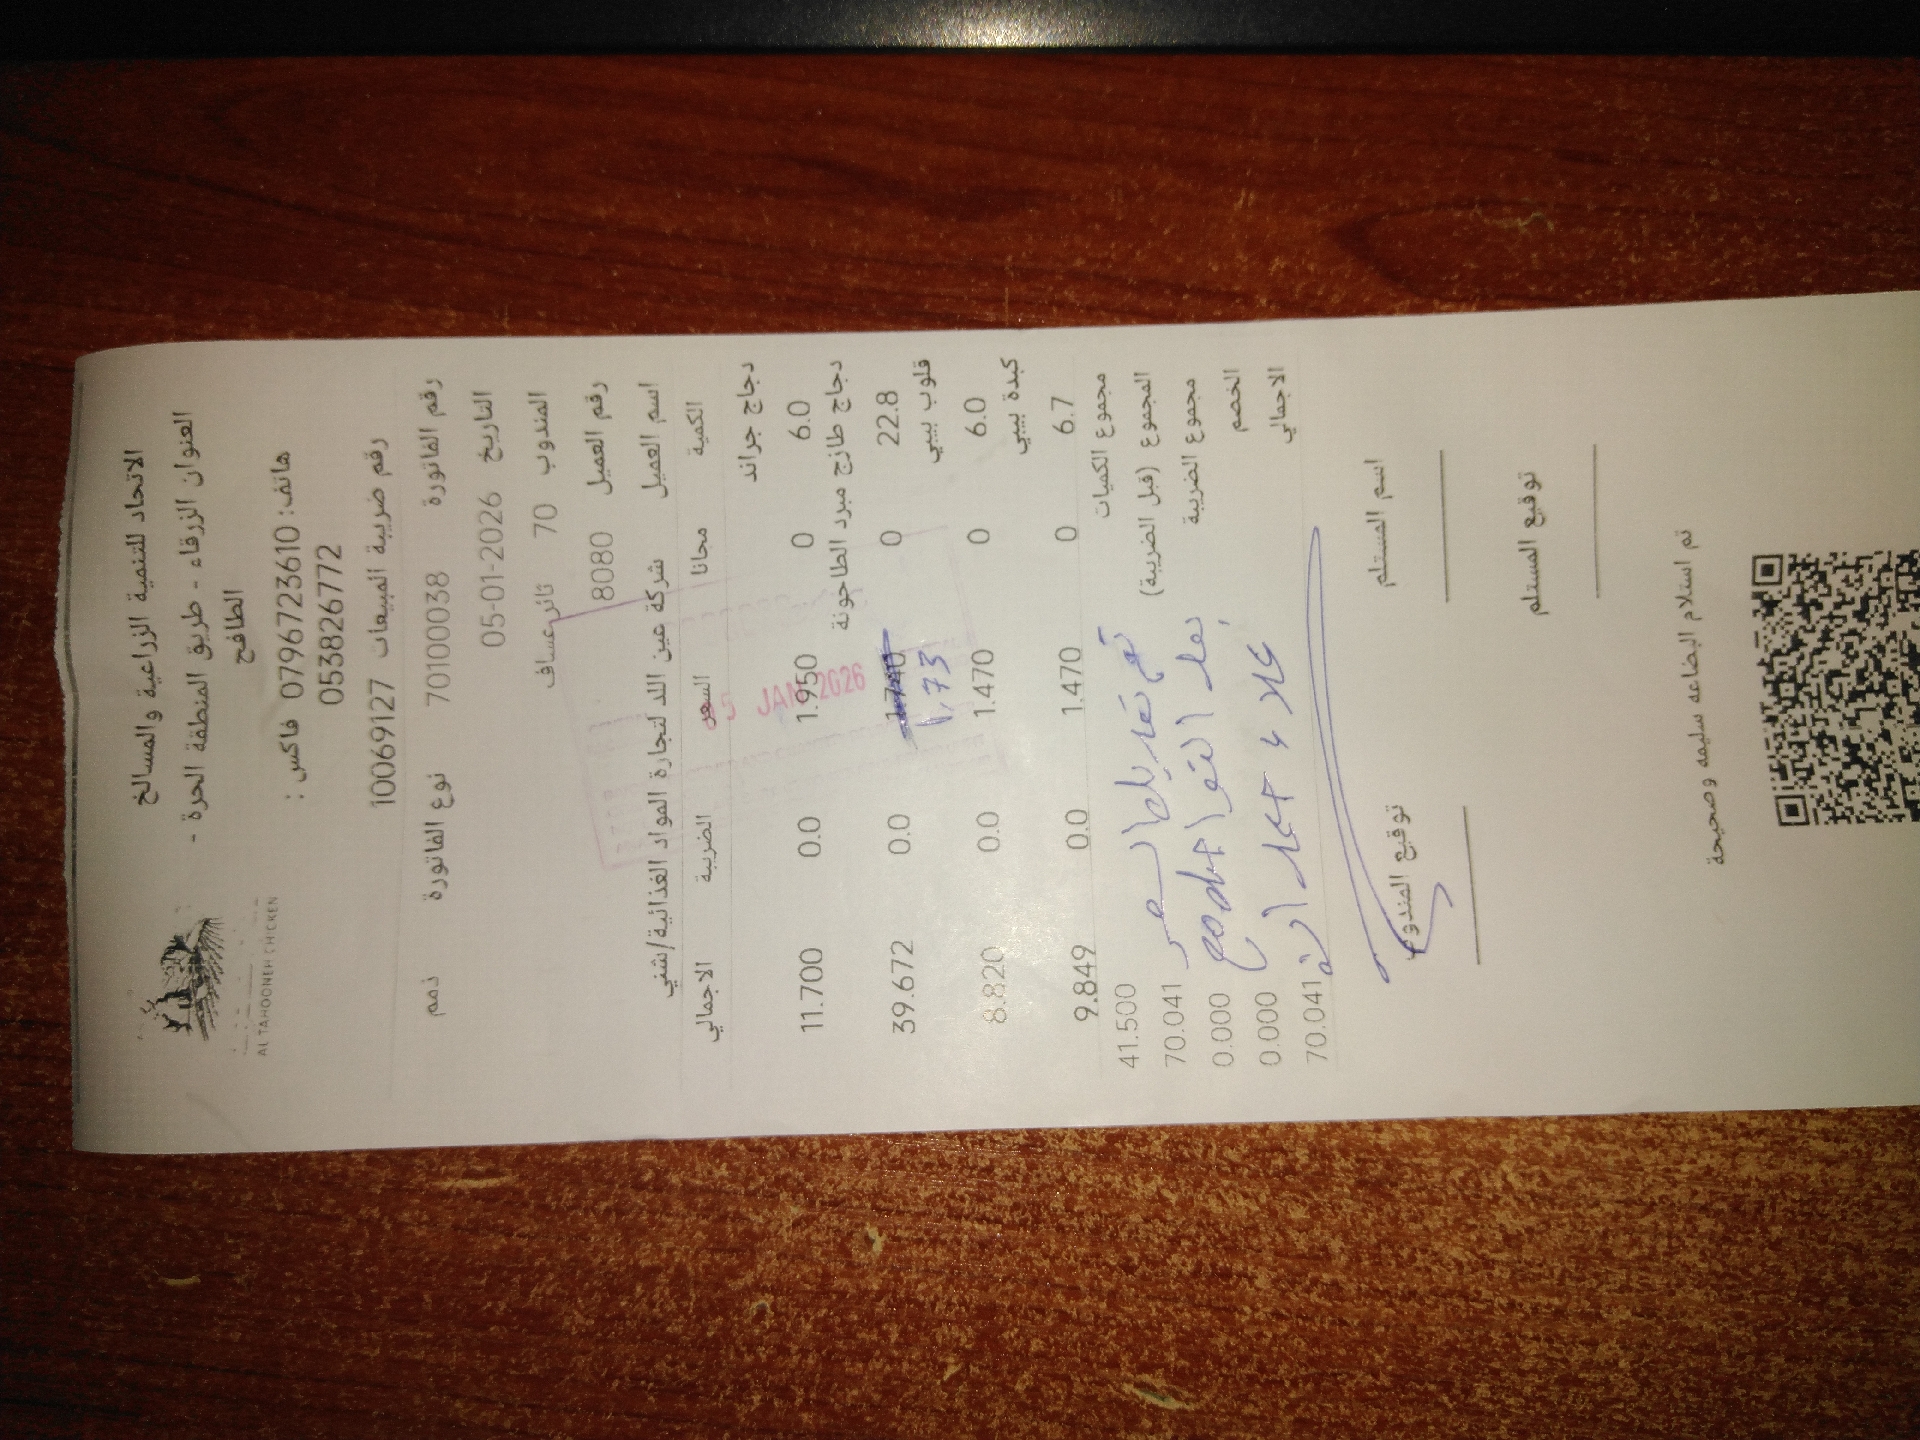 AL TAHOONEH CHICKEN
الاتحاد للتنمية الزراعية والمسالخ
العنوان الزرقاء - طريق المنطقة الحرة -
الطافح
هاتف: 0796723610 فاكس:
053826772
رقم ضريبة المبيعات 10069127
رقم الفاتورة 70100038 نوع الفاتورة ذمم
التاريخ 05-01-2026
المندوب 70 ثائر عساف
رقم العميل 8080
اسم العميل شركة عين اللد لتجارة المواد الغذائية/شني
الكمية مجانا السعر الضريبة الاجمالي
5 JAN 2026
دجاج جراند
6.0 0 1.950 0.0 11.700
دجاج طازج مبرد الطاحونة
22.8 0 1.740 0.0 39.672
1,73
قلوب بيبي
6.0 0 1.470 0.0 8.820
كبدة بيبي
6.7 0 1.470 0.0 9.849
مجموع الكميات 41.500
المجموع (قبل الضريبة) 70.041
مجموع الضريبة 0.000
الخصم 0.000
الاجمالي 70.041
تم تعديل السعر
بعد
علاء
اسم المستلم
توقيع المندوب
توقيع المستلم
تم استلام البضاعه سليمه وصحيحة